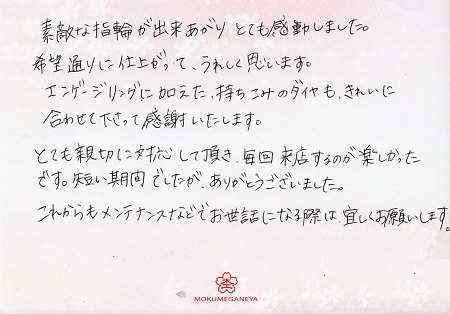 素敵な指輪が出来あがり とても感動しました。
希望通りに仕上がって、うれしく思います。
エンゲージリングに加えた、持ちこみのダイヤも、きれいに
合わせて下さって感謝いたします。
とても親切に対応して頂き、毎回来店するのが楽しかった
です。短い期間でしたが、ありがとうございました。
これからもメンテナンスなどでお世話になる際は、宜しくお願いします。
MOKUMEGANEYA